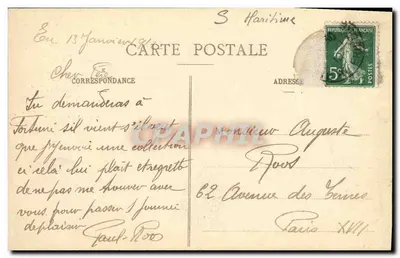 S Maritime
Eu 13 Janvier
CARTE POSTALE
Cher
CORRESPONDANCE
ADRESSE
REPUBLIQUE FRANÇAISE
5c
POSTES
Tu demanderas à
Fortuné s'il vient s'il
que j'envoie une collection
si celà lui plait et regrets
de ne pas me trouver avec
vous pour passer 1 journée
de plaisir
Paul Roos
Monsieur Auguste
Roos
62 Avenue des Ternes
Paris XVII